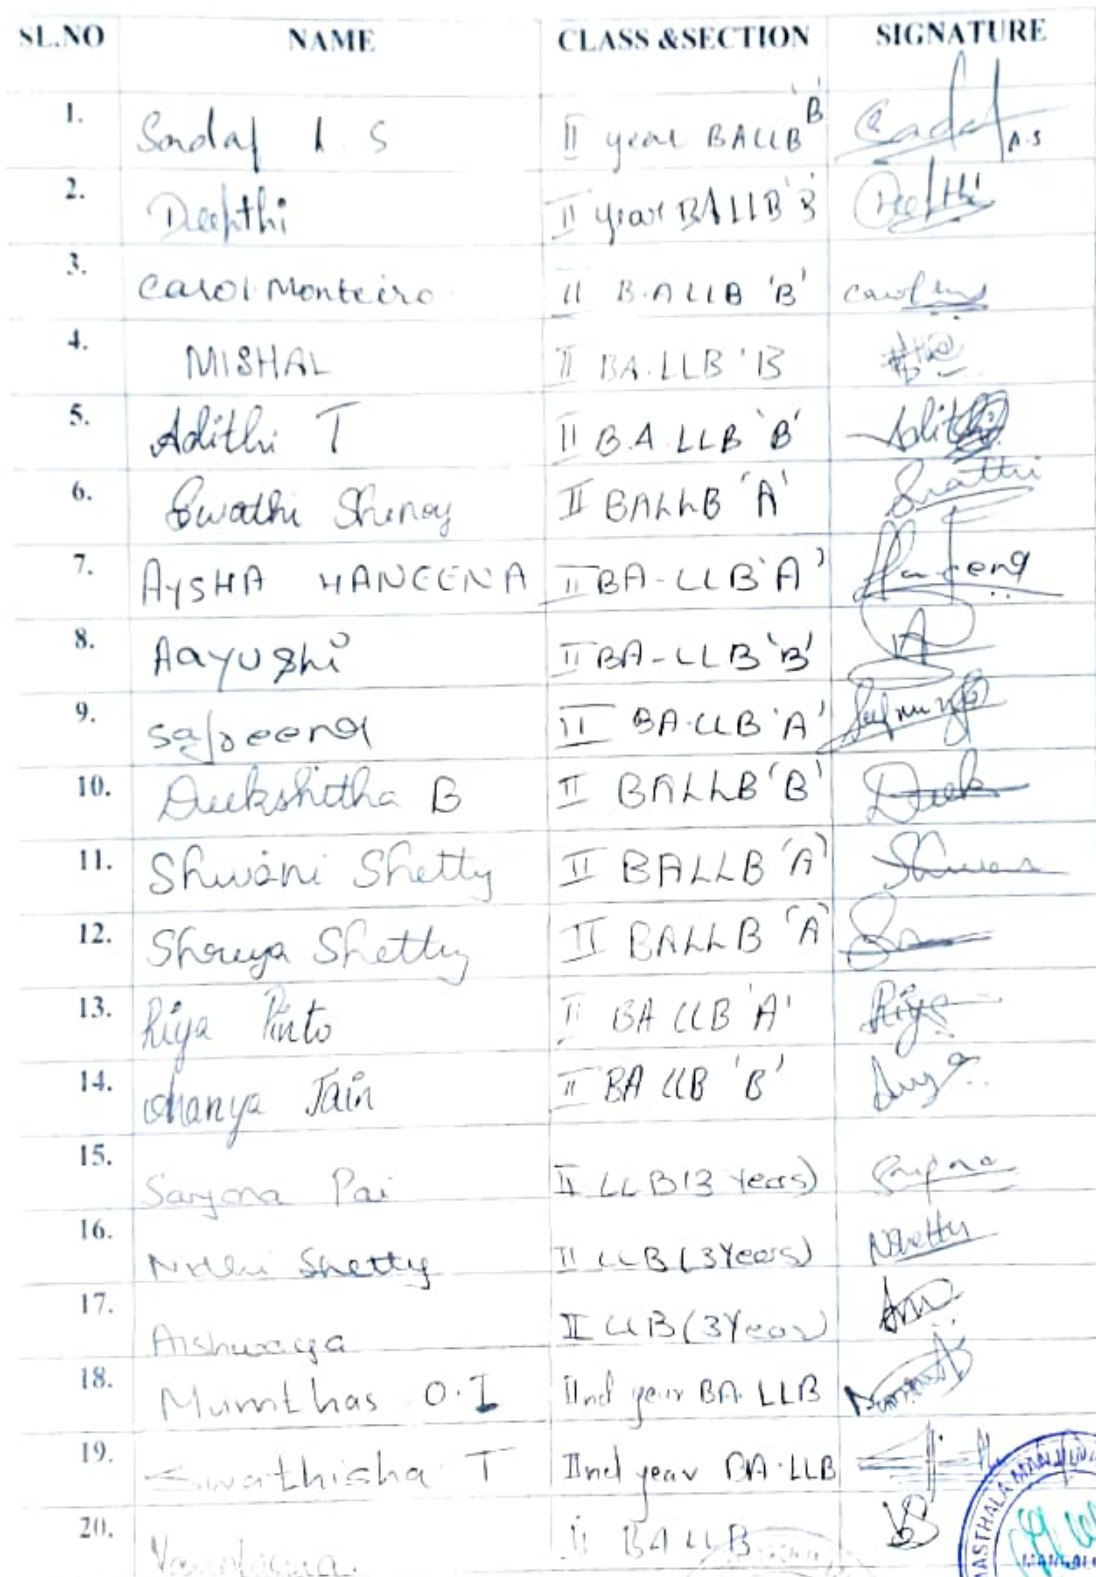 SL.NO NAME CLASS &SECTION SIGNATURE
1. Sadaf A S II year BALLB 'B' Sadaf A.S
2. Deepthi II year BALLB 'B' Deepthi
3. Carol Monteiro II B.A LLB 'B' Carol
4. MISHAL II BA.LLB 'B
5. Adithi T II B.A.LLB 'B' Adithi
6. Swathi Shenoy II BALLB 'A' Swathi
7. AYSHA HANEENA II BA-LLB 'A' Haneena
8. Aayushi II BA-LLB 'B' A
9. Safreena II BA.LLB 'A'
10. Deekshitha B II BALLB 'B' Deek
11. Shwani Shetty II BALLB 'A'
12. Shreya Shetty II BALLB 'A'
13. Riya Pinto II BA LLB 'A' Riya
14. Jain II BA LLB 'B'
15. Sanjana Pai II LLB (3 Years) Sanjana
16. Nidhi Shetty II LLB (3 Years) NShetty
17. Aishwarya II LLB (3 Year)
18. Mumthas O.I IInd year BA. LLB
19. Swathisha T IInd year BA.LLB
20. II BALLB